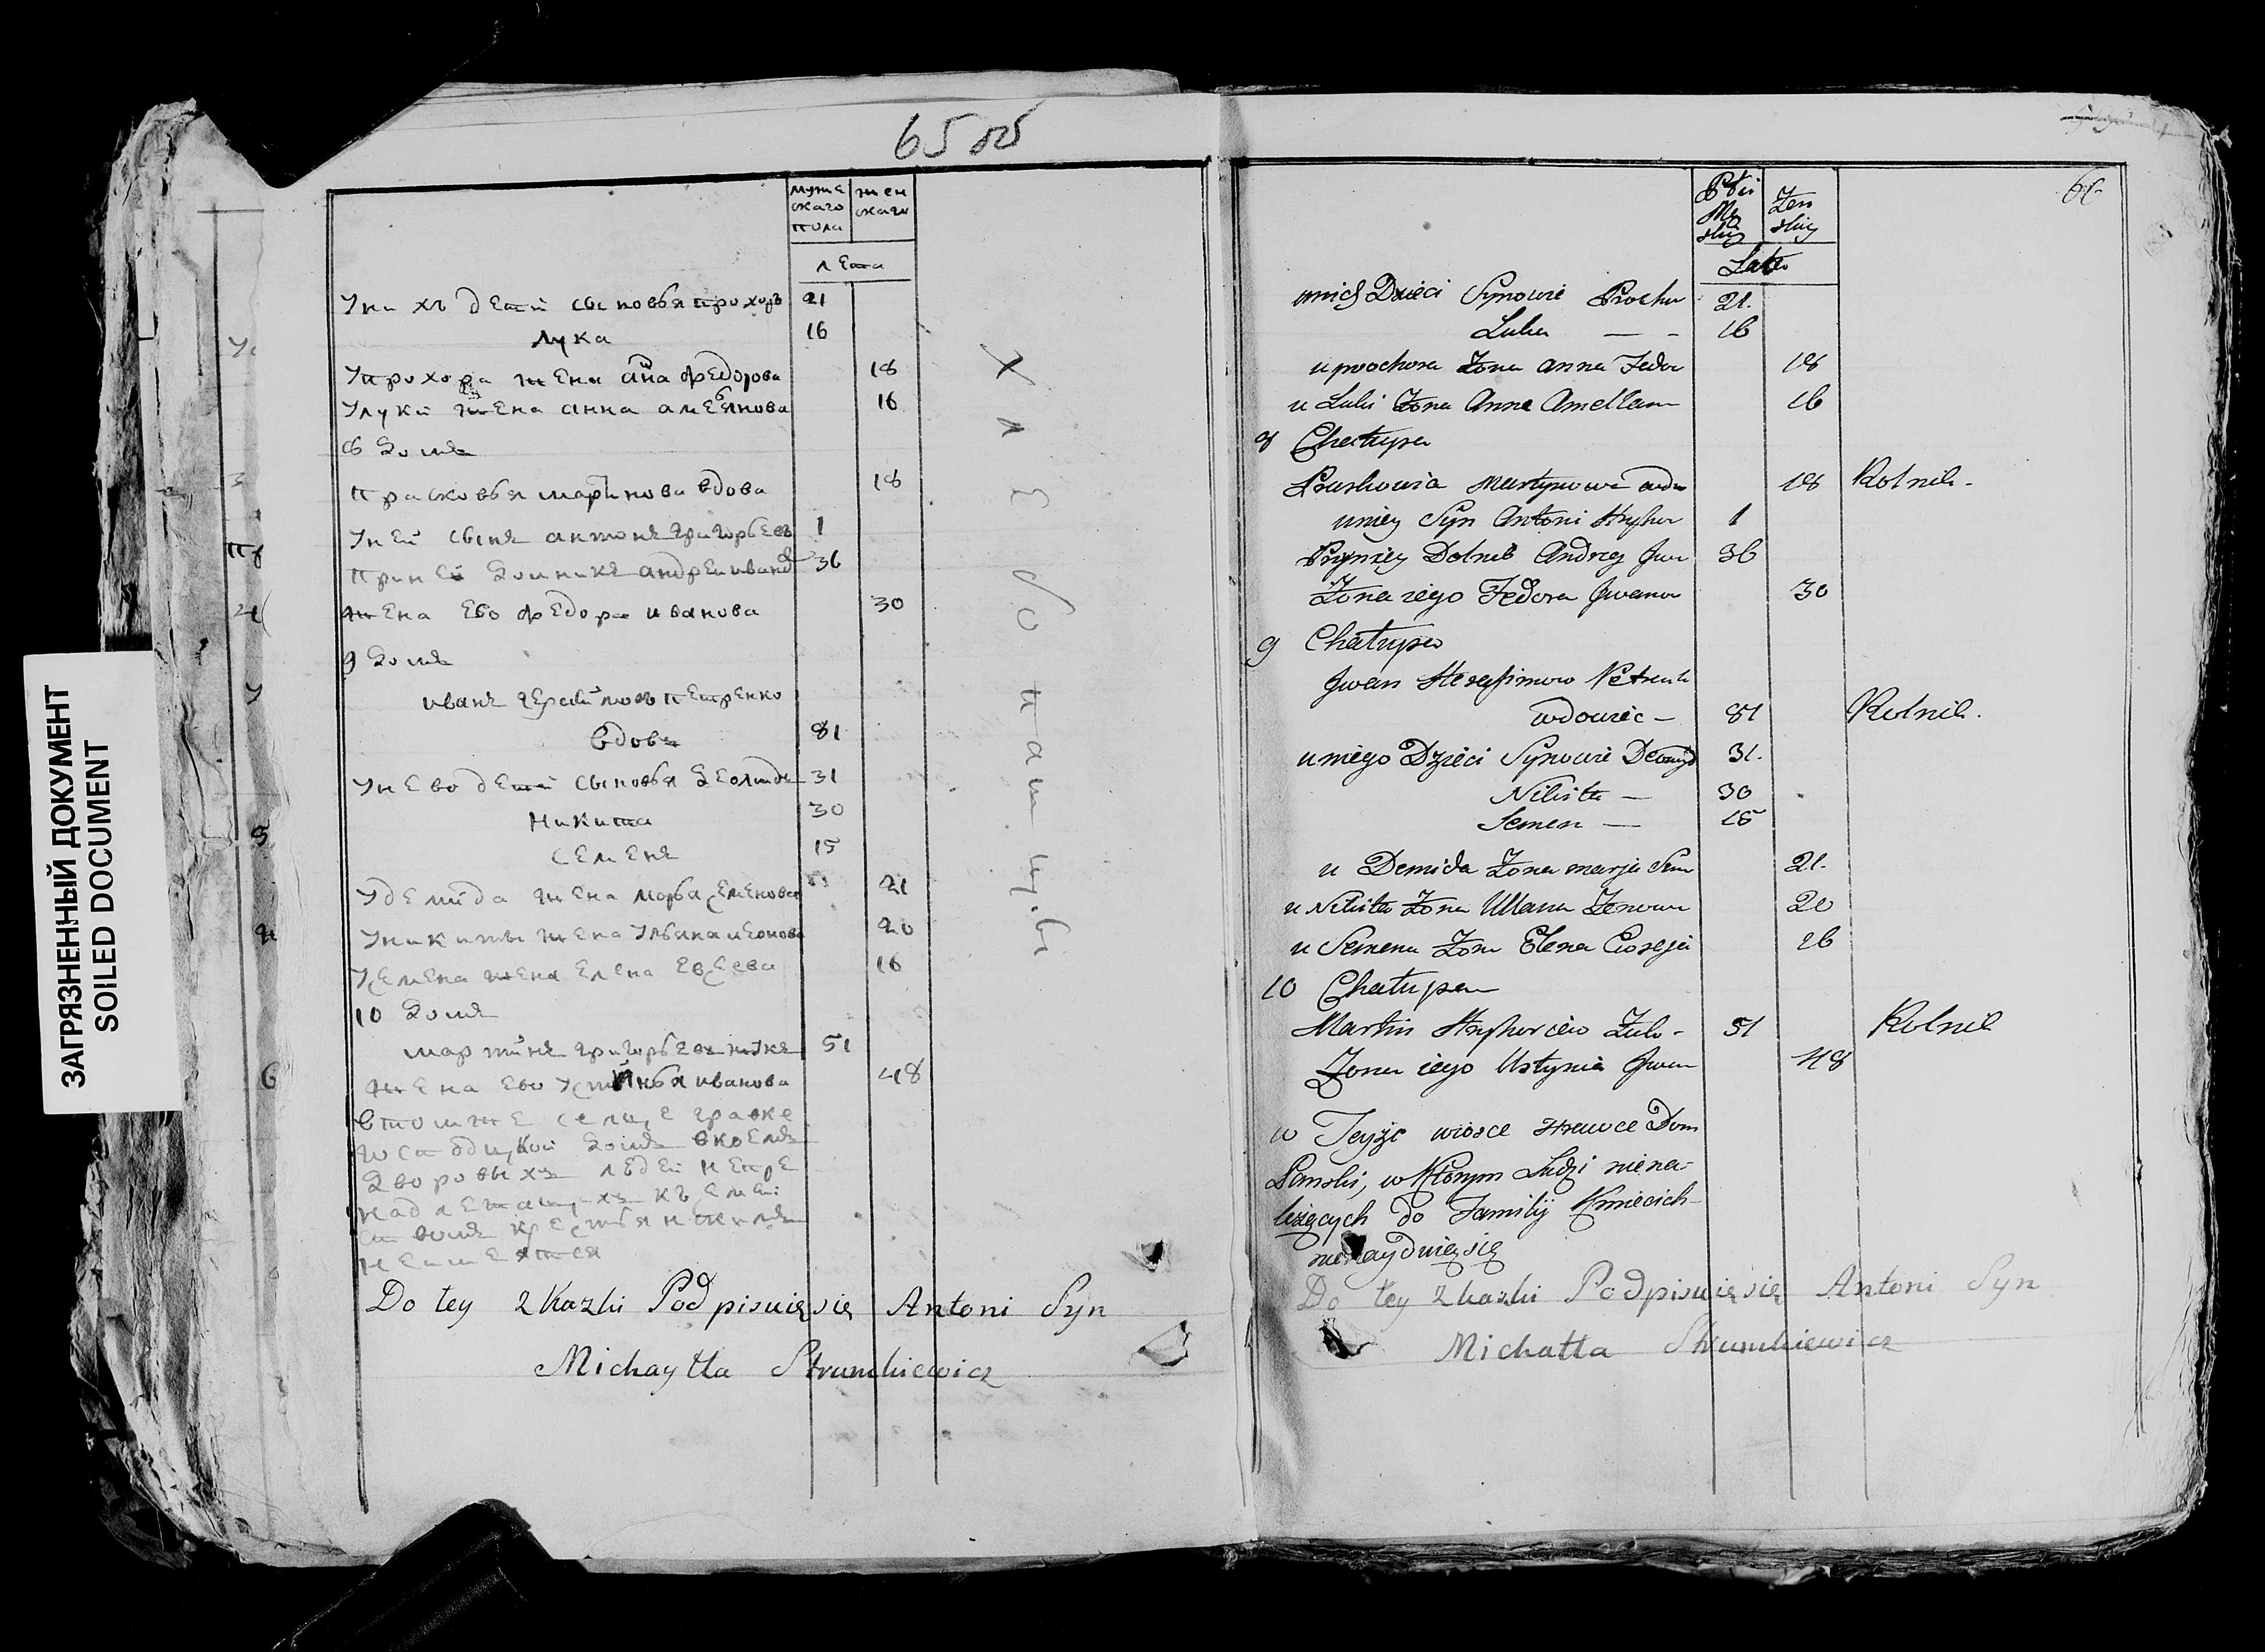 ЗАГРЯЗНЕННЫЙ ДОКУМЕНТ
SOILED DOCUMENT
65 об
муже
скаго
пола
жен
скаго
лета
Уни хъ детй сыновья прохоръ 21
лука 16
Упрохора жена анна федорова 18
Улуки жена анна амебянова 16
8 домъ
прасковья мартинова вдова 18
Уней сынъ антонъ григорьевъ 1
приней домникъ андрей иванов 36
жена ево федора иванова 30
9 домъ
иванъ герасимовъ петренко
вдовъ 81
Унево детй сыновья 31
Никита 30
семенъ 15
Удемида жена марья семенова 21
Уникиты жена Ульяна 20
Усемена жена елена евсеева 16
10 домъ
мартинъ григорьевъ 51
жена ево Устинья иванова 48
втомже селце гравке
домъ вкоемъ
дворовыхъ людей непре
надлежащихъ къ
крестьян
неимеятся
хлебопашцы
Do tey zkazki Podpisuię się Antoni Syn
Michayłła Strumkiewicz
66
Płci
Mę
skiey
Żen
skiey
Lata
unich Dzieci Synowie Prochor 21.
Luka — — 16
u prochora Żona Anna Fedor 18
u Luki Żona Anna Amellan 16
8 Chałupa
Praskowia Martynowa wdo 18 Rolnik -
uniey Syn Antoni Hryhor 1
Przyniey Dolnik Andrzey Iwa 36
Żona iego Fedora Iwanow 30
9 Chałupa
Iwan Herasimow Petrenk
wdowiec — 81 Rolnik.
uniego Dzieci Synowie Demid 31.
Nikita — 30
Semen — 15
u Demida Żona marja Sem 21.
u Nikita Żona Ullana Zenowa 20
u Semena Żona Elena Ewseja 16
10 Chałupa
Martin Hryhorciew Żuk - 51 Rolnik
Żona iego Ustynia Iwan 48
w Teyże wiosce Hrawce Dom
Pański, w Którym Ludzi niena-
leżących do Familij Kmiecich-
nieznayduię się
Do tey zkazki Podpisuię się Antoni Syn
Michałła Strumkiewicz